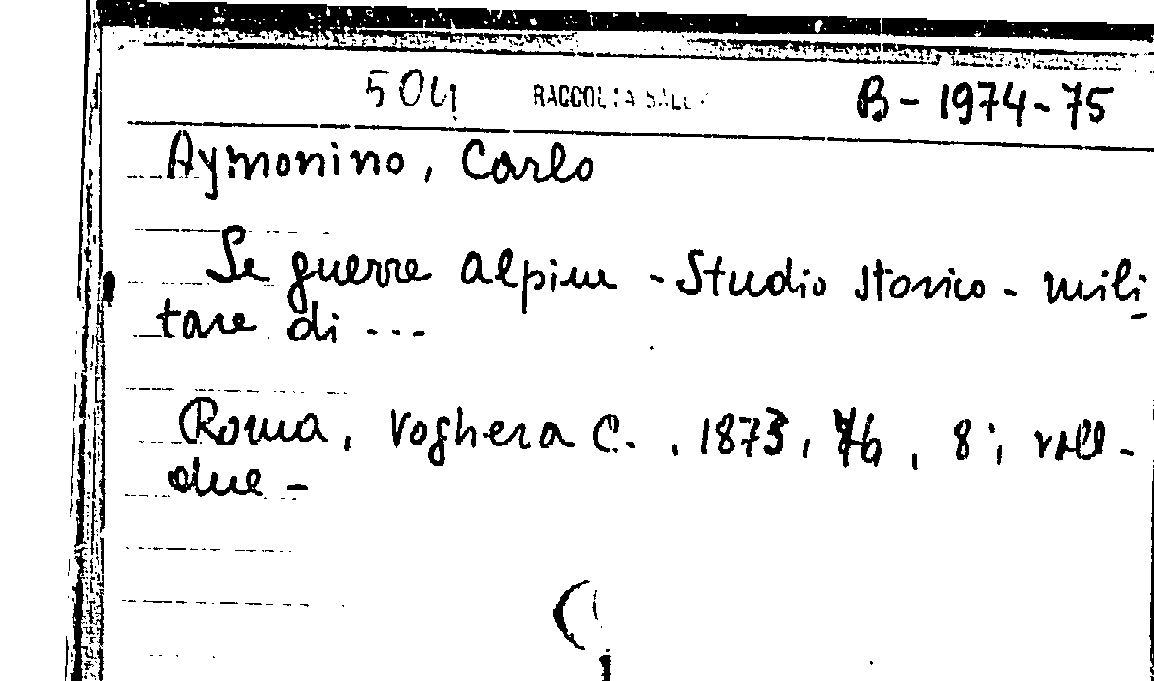 504 RACCOLTA SALE B-1974-75
Aymonino, Carlo
Le guerre alpine - Studio storico - mili
tare di ...
Roma, Voghera C. , 1873, 76, 8°, voll.
due -